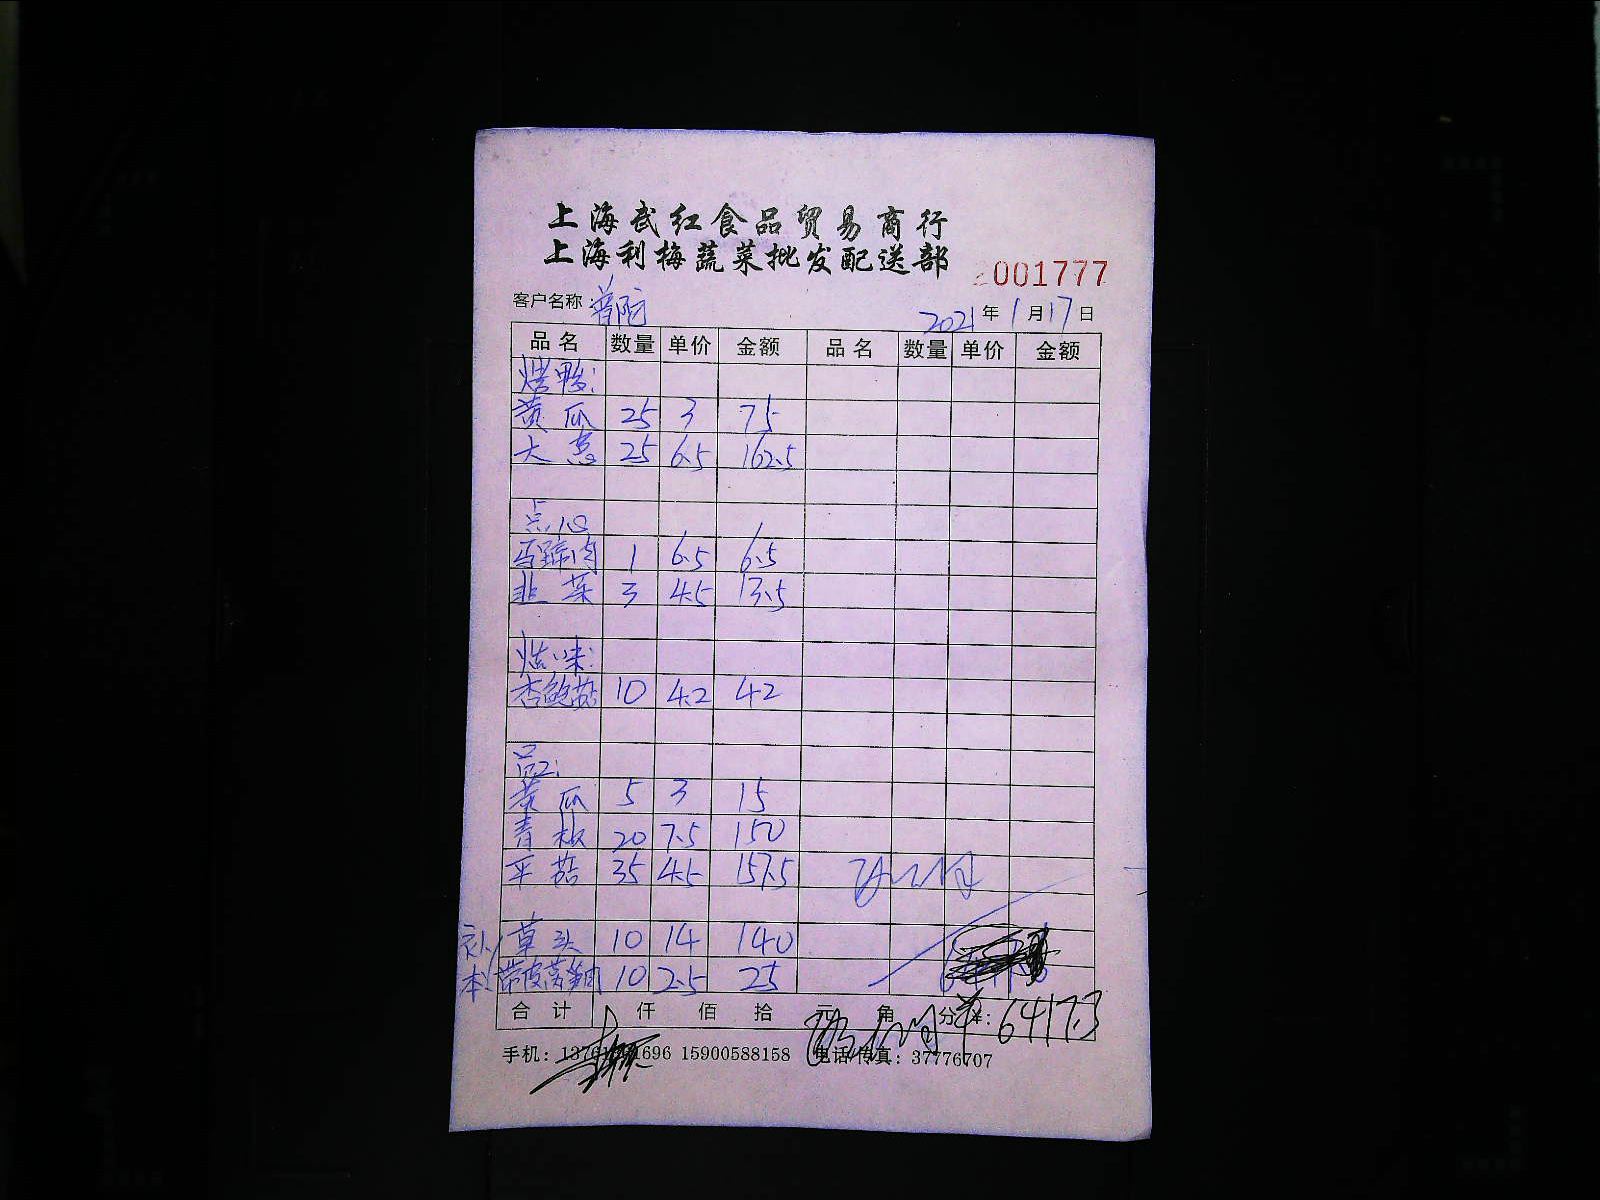 上海武红食品贸易商行
上海利梅蔬菜批发配送部
2001777
客户名称：普陀 2021年1月17日
品名 数量 单价 金额 品名 数量 单价 金额
烤鸭：
黄瓜 25 3 75
大葱 25 6.5 162.5
点心
马蹄肉 1 6.5 6.5
韭菜 3 4.5 13.5
烧味：
杏鲍菇 10 4.2 42
黄瓜 5 3 15
青椒 20 7.5 150
平菇 35 4.5 157.5
补 草头 10 14 140
本 带皮莴笋肉 10 2.5 25
合计 仟 佰 拾 元 角 分 ¥：6417.3
手机： 15900588158 电话/传真：37776707